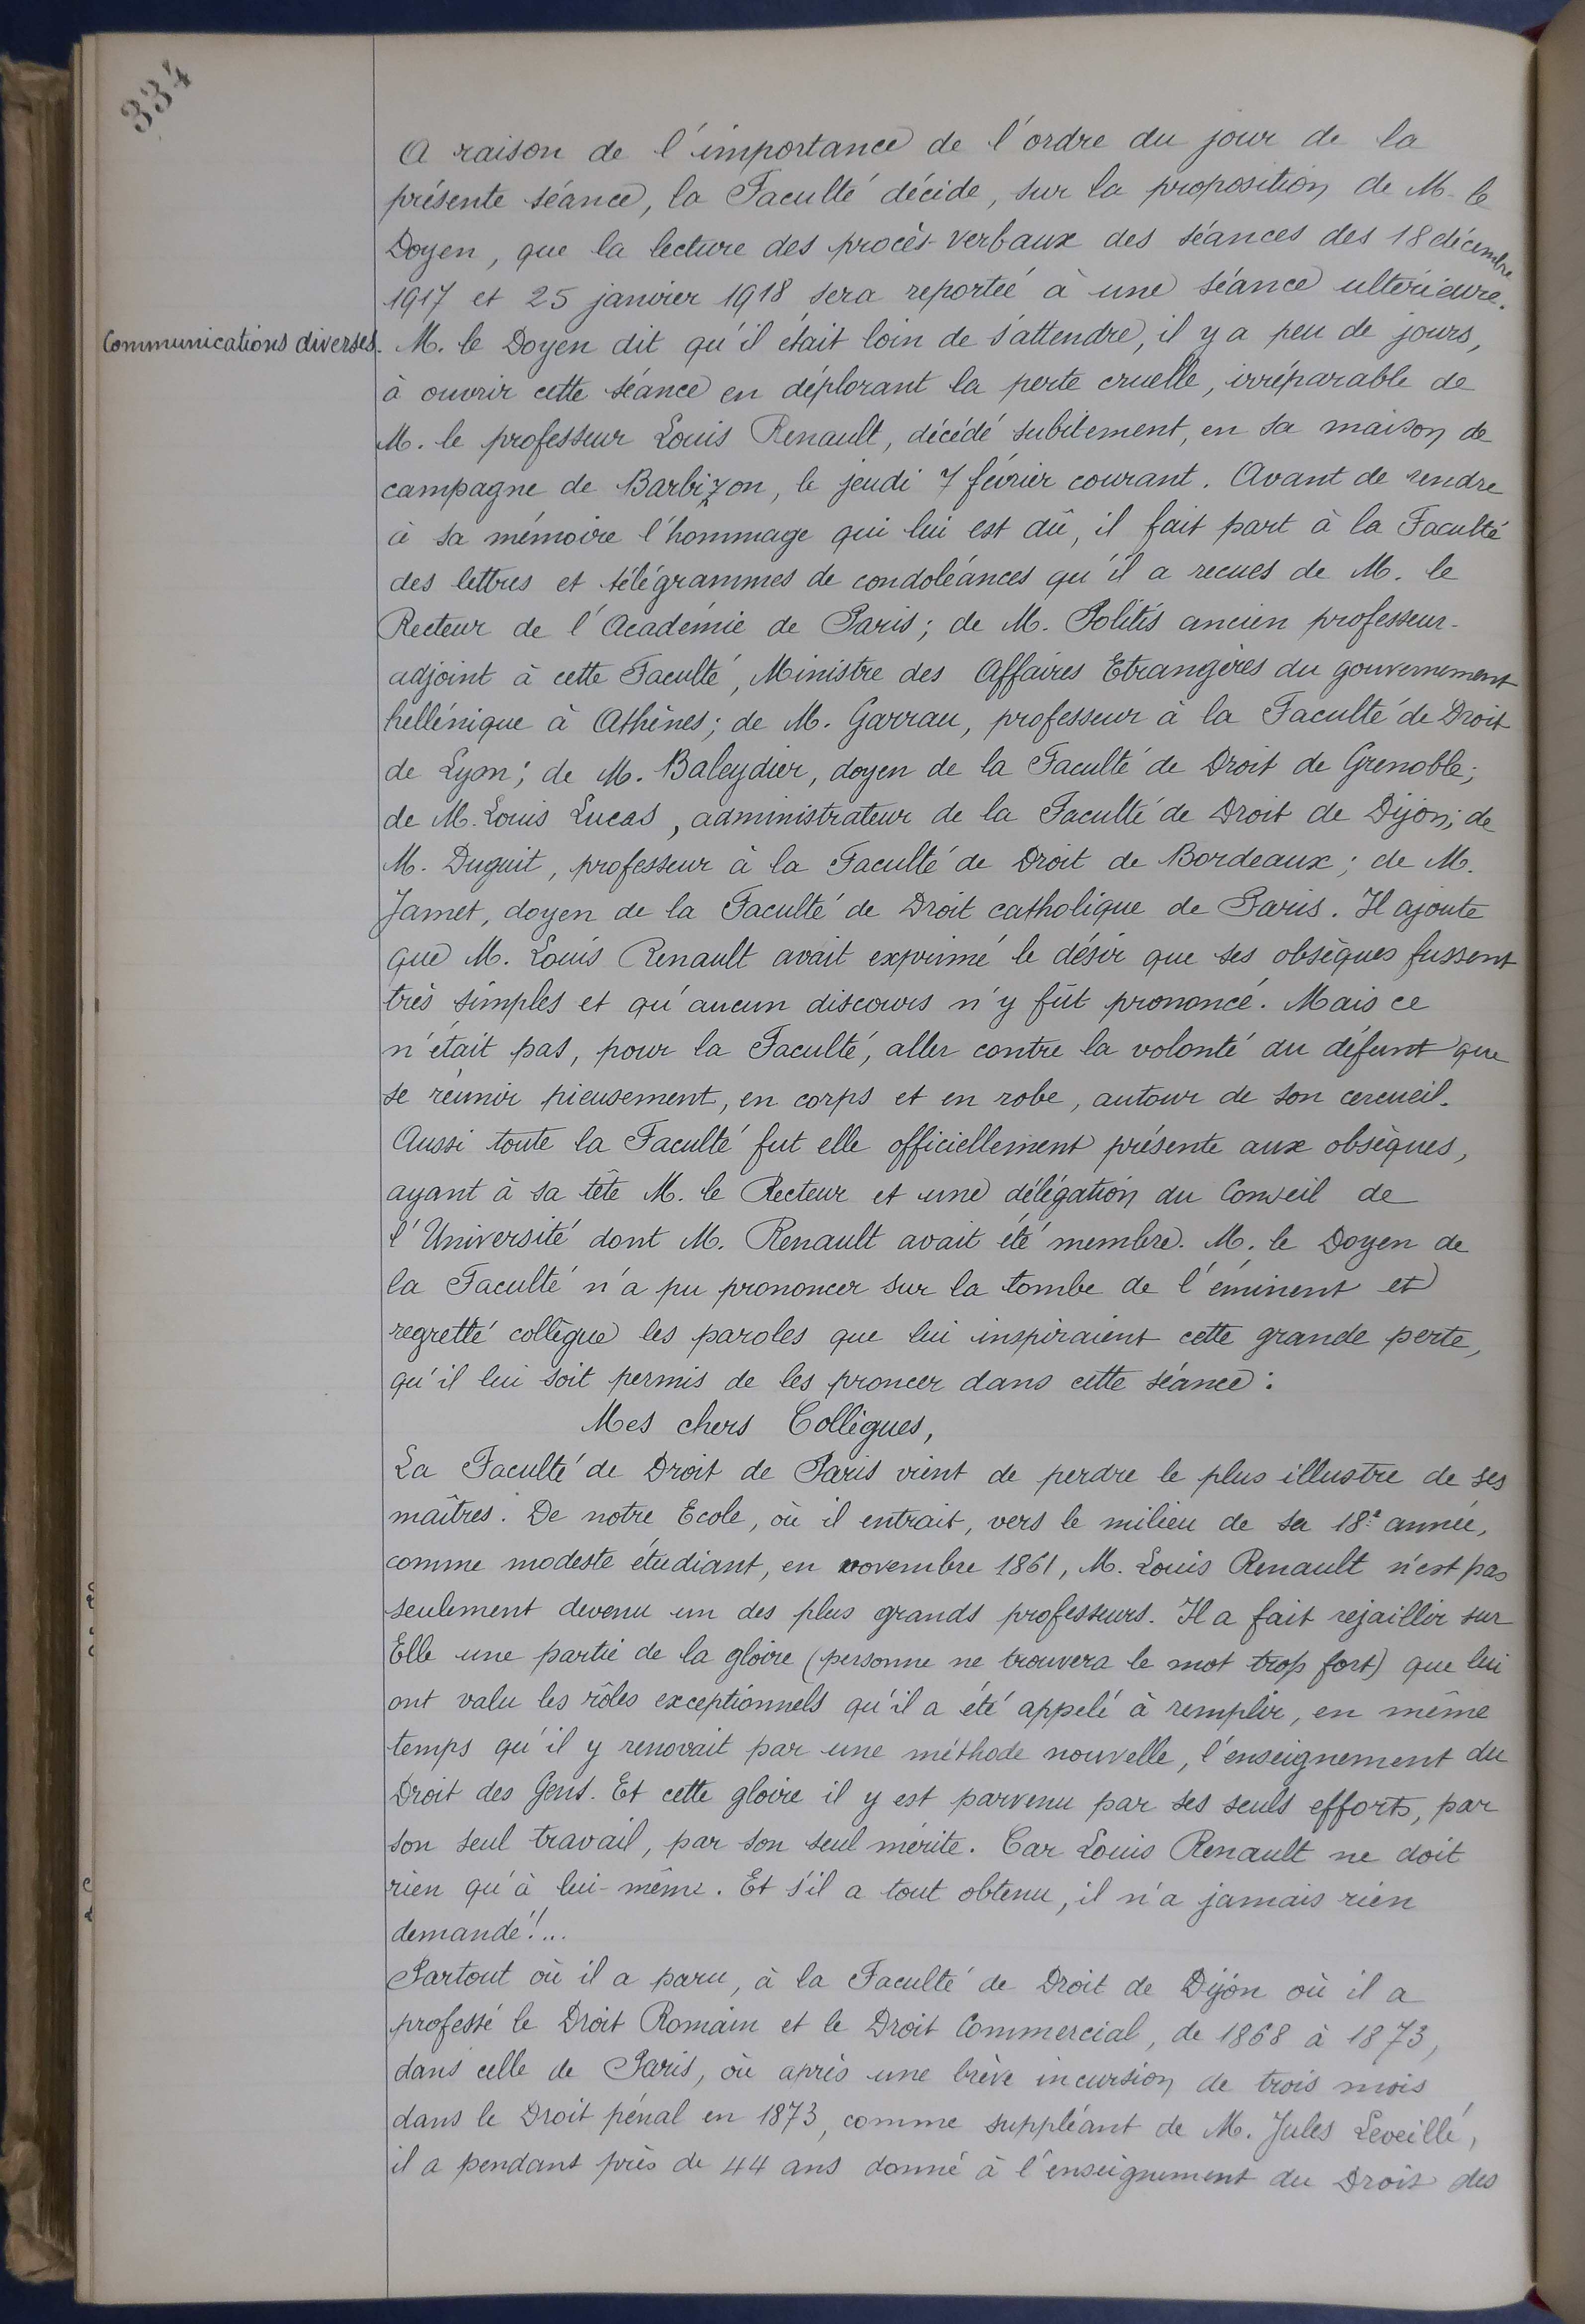 334
A raison de l'importance de l'ordre du jour de la
présente séance, la Faculté décide, sur la proposition de M. le
Doyen, que la lecture des procès-verbaux des séances des 18 décembre
1917 et 25 janvier 1918 sera reportée à une séance ultérieure.
Communications diverses. M. le Doyen dit qu'il était loin de s'attendre, il y a peu de jours,
à ouvrir cette séance en déplorant la perte cruelle, irréparable de
M. le professeur Louis Renault, décédé subitement, en sa maison de
campagne de Barbizon, le jeudi 7 février courant. Avant de rendre
à sa mémoire l'hommage qui lui est dû, il fait part à la Faculté
des lettres et télégrammes de condoléances qu'il a recues de M. le
Recteur de l'Académie de Paris ; de M. Politis ancien professeur-
adjoint à cette Faculté, Ministre des Affaires Etrangères du gouvernement
hellénique à Athènes ; de M. Garrau, professeur à la Faculté de Droit
de Lyon ; de M. Baleydier, doyen de la Faculté de Droit de Grenoble ;
de M. Louis Lucas, administrateur de la Faculté de Droit de Dijon ; de
M. Duguit, professeur à la Faculté de Droit de Bordeaux ; de M.
Jamet, doyen de la Faculté de Droit catholique de Paris. Il ajoute
que M. Louis Renault avait exprimé le désir que ses obsèques fussent
très simples et qu'aucun discours n'y fût prononcé. Mais ce
n'était pas, pour la Faculté, aller contre la volonté du défunt que
se réunir pieusement, en corps et en robe, autour de son cercueil.
Aussi toute la Faculté fut elle officiellement présente aux obsèques,
ayant à sa tête M. le Recteur et une délégation du Conseil de
l'Université dont M. Renault avait été membre. M. le Doyen de
la Faculté n'a pu prononcer sur la tombe de l'éminent et
regretté collègue les paroles que lui inspiraient cette grande perte,
qu'il lui soit permis de les proncer dans cette séance :
Mes chers Collègues,
La Faculté de Droit de Paris vient de perdre le plus illustre de ses
maîtres. De notre Ecole, où il entrait, vers le milieu de sa 18e année,
comme modeste étudiant, en novembre 1861, M. Louis Renault n'est pas
seulement devenu un des plus grands professeurs. Il a fait rejaillir sur
Elle une partie de la gloire (personne ne trouvera le mot trop fort) que lui
ont valu les rôles exceptionnels qu'il a été appelé à remplir, en même
temps qu'il y renovait par une méthode nouvelle, l'enseignement du
Droit des Gens. Et cette gloire il y est parvenu par ses seuls efforts, par
son seul travail, par son seul mérite. Car Louis Renault ne doit
rien qu'à lui-même. Et s'il a tout obtenu, il n'a jamais rien
demandé !...
Partout où il a paru, à la Faculté de Droit de Dijon où il a
professé le Droit Romain et le Droit Commercial, de 1868 à 1873,
dans celle de Paris, où après une brève incursion de trois mois
dans le Droit pénal en 1873, comme suppléant de M. Jules Leveillé,
il a pendant près de 44 ans donné à l'enseignement du Droit des